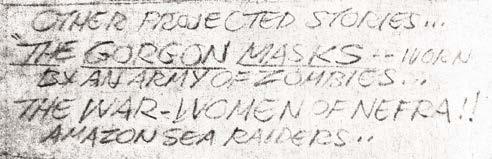 OTHER PROJECTED STORIES...
"THE GORGON MASKS -- WORN
BY AN ARMY OF ZOMBIES...
THE WAR-WOMEN OF NEFRA!!
AMAZON SEA RAIDERS..